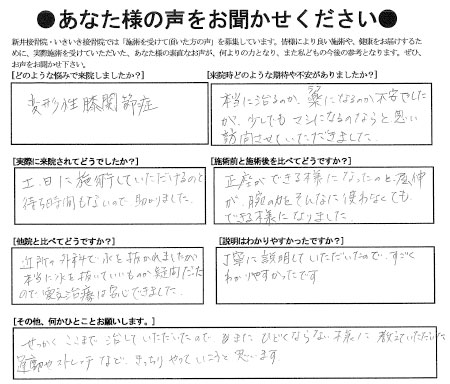 ●あなた様の声をお聞かせください●
新井接骨院・いきいき接骨院では「施術を受けて頂いた方の声」を募集しています。皆様により良い施術や、健康をお届けするた
めに、実際施術を受けていただいた、あなた様の素直なお声が、何よりの力となり、また私どもの今後の参考となります。ぜひ、
お声をお聞かせ下さい。
[どのような悩みで来院しましたか?]
変形性膝関節症
[来院時どのような期待や不安がありましたか?]
本当に治るのか、楽になるのか不安でした
が、少しでもマシになるのならと思い
訪問させていただきました。
[実際に来院されてどうでしたか?]
土、日に施術していただけるのと
待ち時間もないので助かりました。
[施術前と施術後を比べてどうですか?]
正座ができる様になったのと屈伸
が、腕の力をそんなに使わなくても
できる様になりました。
[他院と比べてどうですか?]
近所の外科で水を抜かれましたが
本当に水を抜いていいものか疑問だった
ので 治療は安心できました。
[説明はわかりやすかったですか?]
丁寧に説明していただいたので、すごく
わかりやすかったです
[その他、何かひとことお願いします。]
せっかくここまで治していただいたので、 ひどくならない様に教えていただいた
運動やストレッチなど、きっちりやっていこうと思います